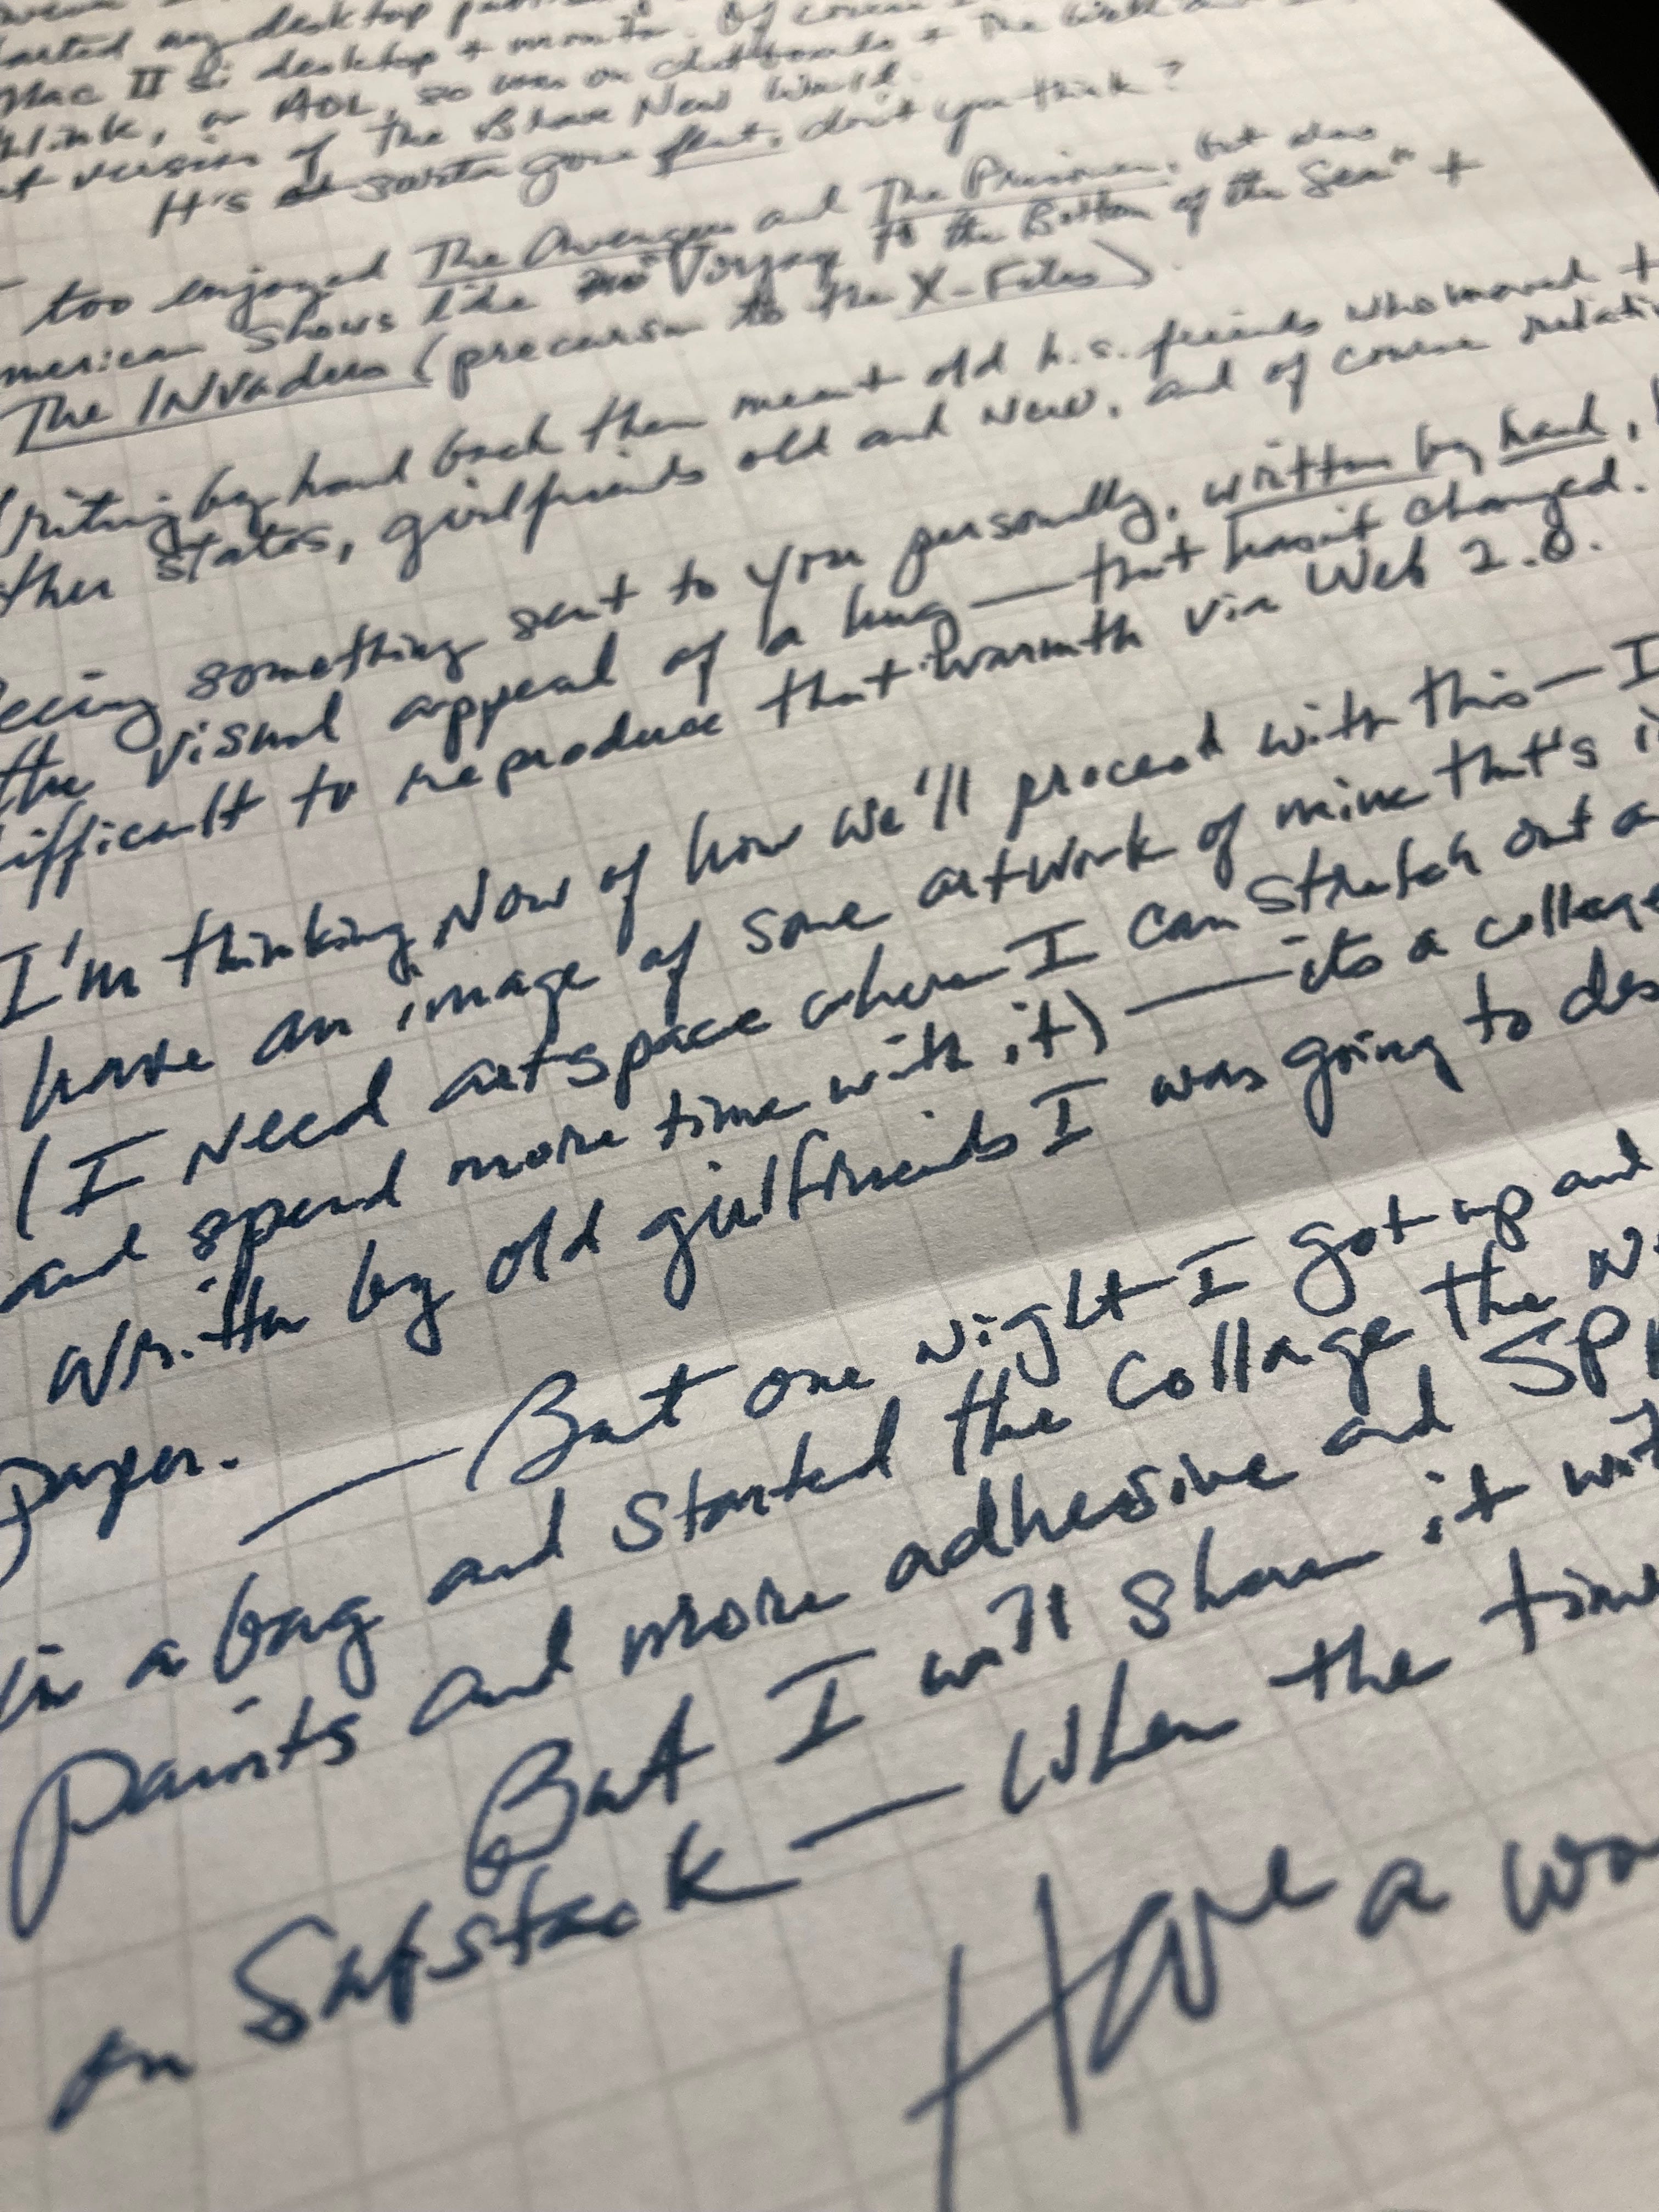 started my desktop
Mac II si desktop + monitor. Of course
or AOL, so was on chatboards + The Well
version of the Brave New World.
It's sorta gone flat, don't you think?
I too enjoyed The Avengers and The Prisoner, but also
American shows like "Voyage to the Bottom of the Sea" +
The INvaders (precursor to the X-Files).
Writing by hand back then meant old h.s. friends who moved to
other states, girlfriends old and New, and of course
Seeing something sent to you personally, written by hand,
the visual appeal of a hug — that hasn't changed.
difficult to reproduce that warmth via Web 2.0.
I'm thinking Now of how we'll proceed with this — I
have an image of some artwork of mine that's
(I Need artspace where I can Stretch out
and spend more time with it) — its a collage
Written by old girlfriends I was going to
paper. — But one night I got up and
in a bag and Started the Collage the
Paints and more adhesive and
But I will Share it
on Substack — When the
Have a